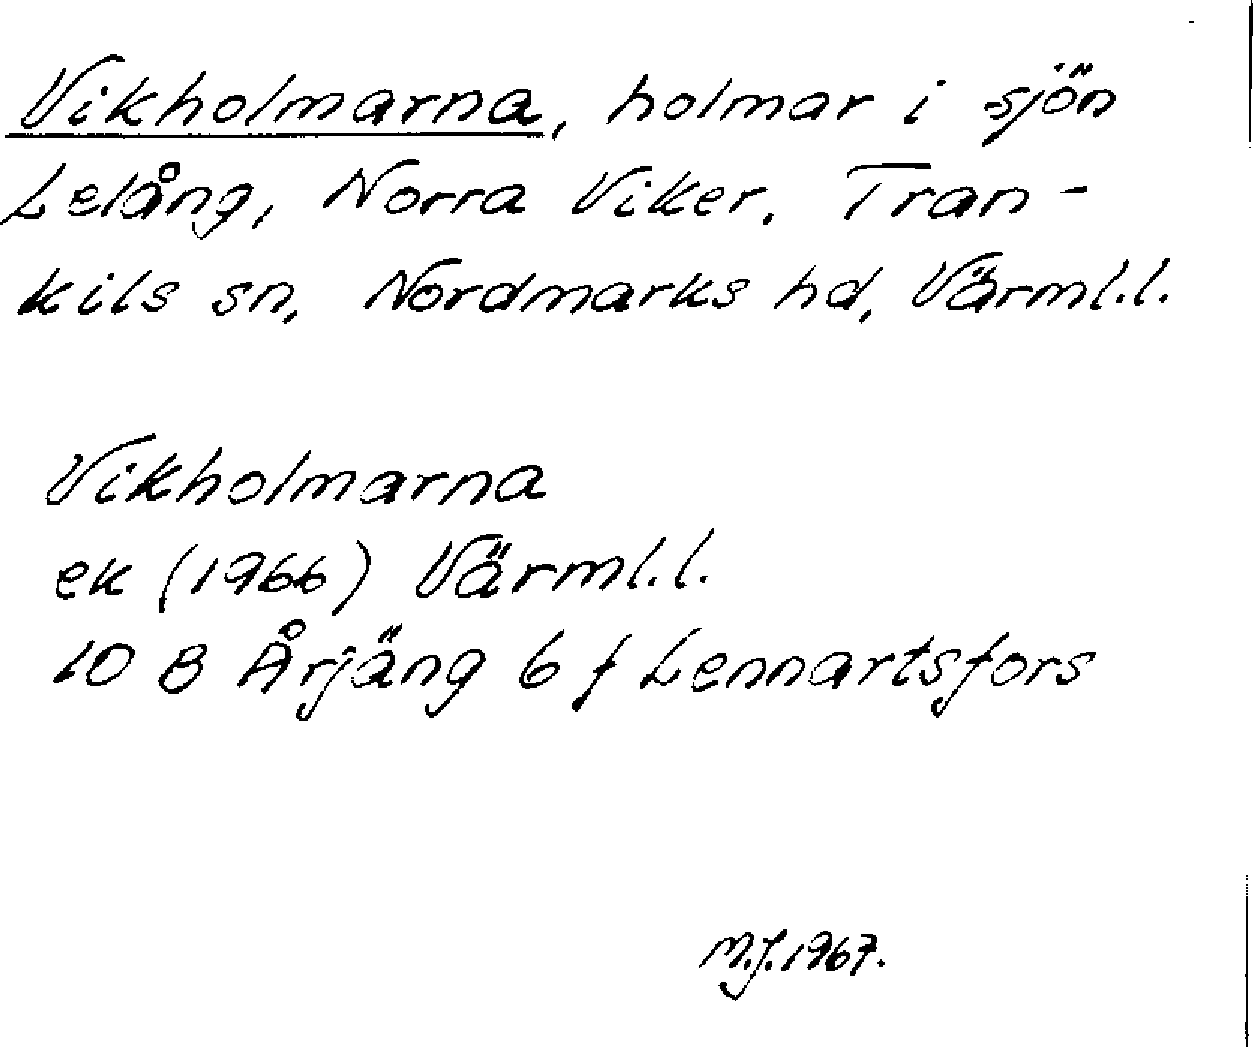 Vikholmarna, holmar i sjön
Lelång, Norra Viker. Tran-
kils sn, Nordmarks hd, Värml.l.
Vikholmarna
ek (1966) Värml.l.
10 B Årjäng 6 f Lennartsfors
M.J. 1967.